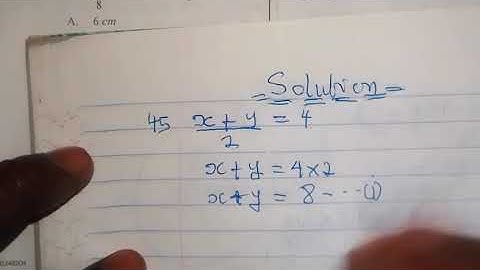 8
A. 6 cm
Solution
45 x + y = 4
2
x+y = 4×2
x+y = 8 --- (i)